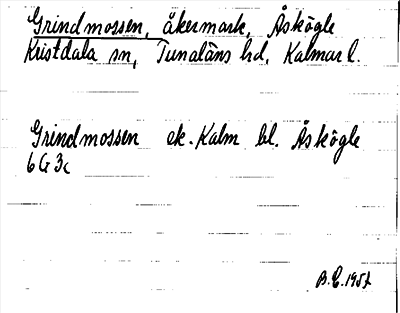 Grindmossen, åkermark, Åskögle
Kristdala sn, Tunaläns hd, Kalmar l.
Grindmossen ek. Kalm bl. Åskögle
6 G 3c
B.E. 1957